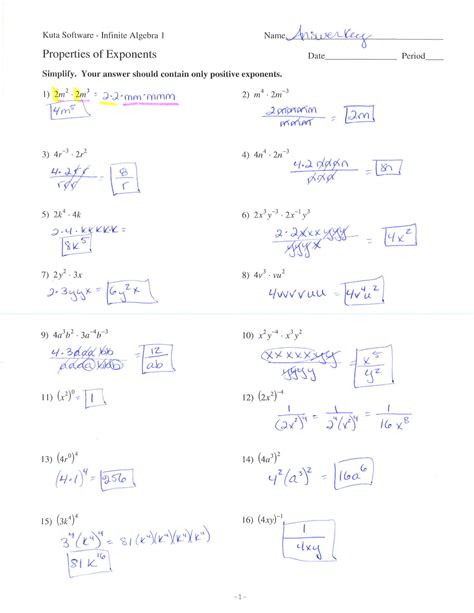 Kuta Software - Infinite Algebra 1 Name Answer Key
Properties of Exponents Date Period
Simplify. Your answer should contain only positive exponents.
1) 2m² · 2m³ = 2·2·mm·mmm
4m⁵
2) m⁴ · 2m⁻³
2mmmm / mmm = 2m
3) 4r⁻³ · 2r²
4·2rr / rrr = 8 / r
4) 4n⁴ · 2n⁻³
4·2nnnn / nnn = 8n
5) 2k⁴ · 4k
2·4·kkkkk =
8k⁵
6) 2x³y⁻³ · 2x⁻¹y³
2·2xxxyyy / yyyx = 4x²
7) 2y² · 3x
2·3yyx = 6y²x
8) 4v³ · vu²
4vvvvuu = 4v⁴u²
9) 4a³b² · 3a⁻⁴b⁻³
4·3aaabb / aaaabbb = 12 / ab
10) x²y⁻⁴ · x³y²
xxxxxyy / yyyy = x⁵ / y²
11) (x²)⁰ = 1
12) (2x²)⁻⁴
1 / (2x²)⁴ = 1 / 2⁴(x²)⁴ = 1 / 16x⁸
13) (4r⁰)⁴
(4·1)⁴ = 256
14) (4a³)²
4²(a³)² = 16a⁶
15) (3k⁴)⁴
3⁴(k⁴)⁴ = 81(k⁴)(k⁴)(k⁴)(k⁴)
81k¹⁶
16) (4xy)⁻¹
1 / 4xy
-1-